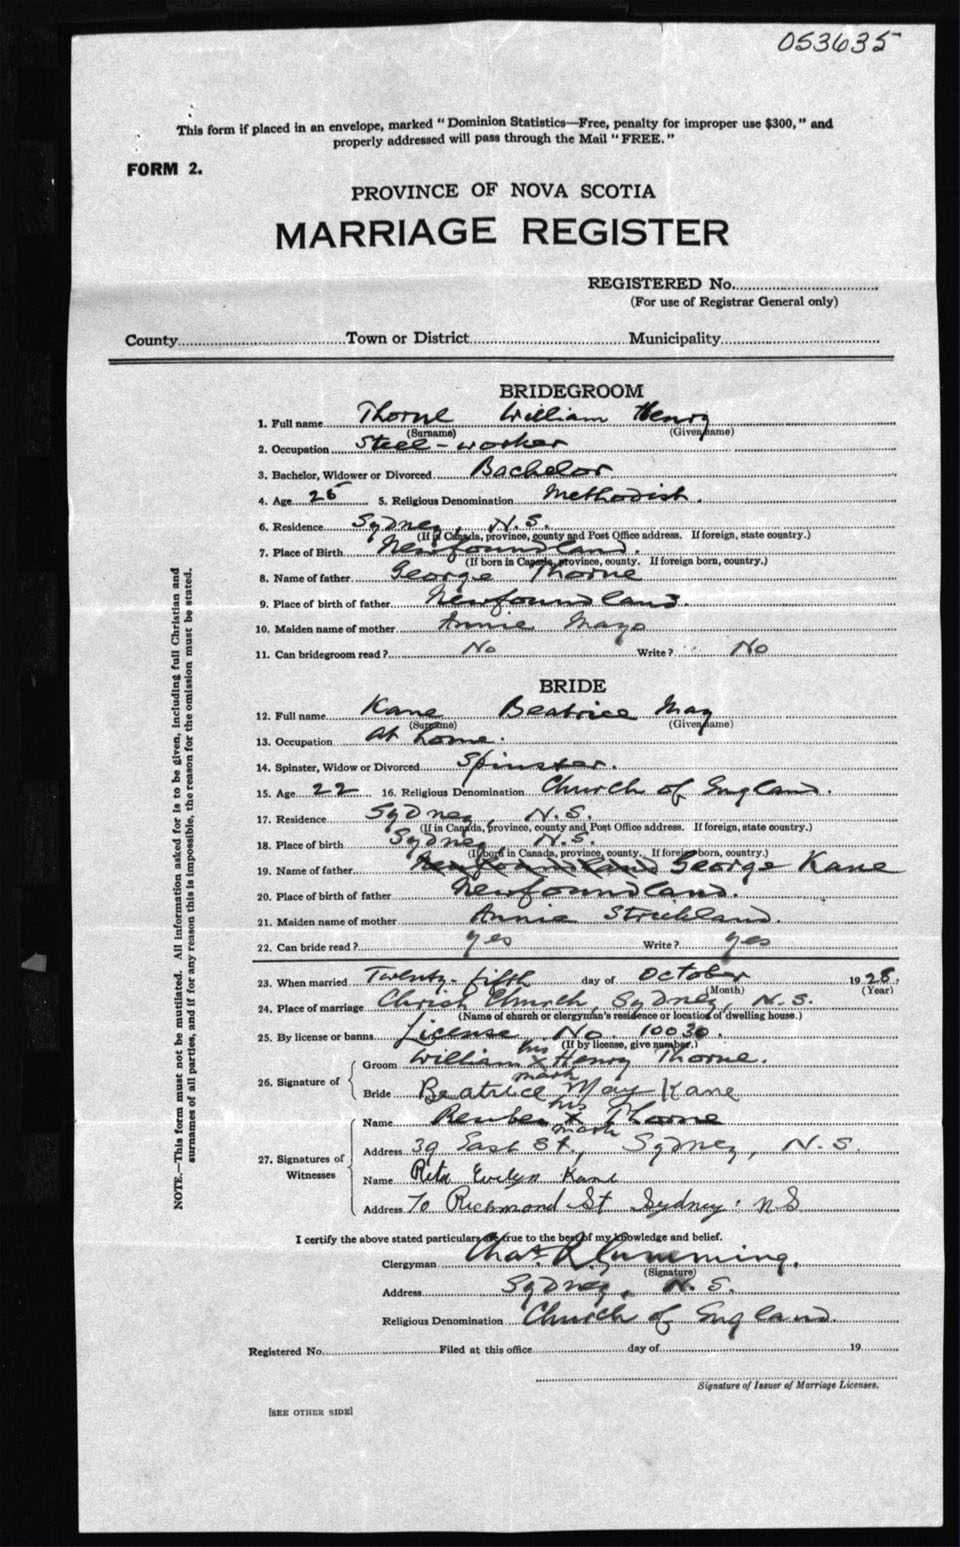 053635
This form if placed in an envelope, marked "Dominion Statistics—Free, penalty for improper use $300," and
properly addressed will pass through the Mail "FREE."
FORM 2.
PROVINCE OF NOVA SCOTIA
MARRIAGE REGISTER
REGISTERED No.
(For use of Registrar General only)
County Town or District Municipality
BRIDEGROOM
1. Full name Thorne William Henry
(Surname) (Given name)
2. Occupation Steel-worker
3. Bachelor, Widower or Divorced Bachelor
4. Age 25 5. Religious Denomination Methodist.
6. Residence Sydney, N.S.
(If in Canada, province, county and Post Office address. If foreign, state country.)
7. Place of Birth Newfoundland.
(If born in Canada, province, county. If foreign born, country.)
8. Name of father George Thorne
9. Place of birth of father Newfoundland.
10. Maiden name of mother Annie Mayo
11. Can bridegroom read? No Write? No
BRIDE
12. Full name Kane Beatrice May
(Surname) (Given name)
13. Occupation At home.
14. Spinster, Widow or Divorced Spinster.
15. Age 22 16. Religious Denomination Church of England.
17. Residence Sydney, N.S.
(If in Canada, province, county and Post Office address. If foreign, state country.)
18. Place of birth Sydney, N.S.
(If born in Canada, province, county. If foreign born, country.)
19. Name of father Newfoundland George Kane
20. Place of birth of father Newfoundland.
21. Maiden name of mother Annie Strickland.
22. Can bride read? Yes Write? Yes
23. When married Twenty-fifth day of October 1928.
(Month) (Year)
24. Place of marriage Christ Church, Sydney, N.S.
(Name of church or clergyman's residence or location of dwelling house.)
25. By license or banns License No. 10030.
(If by license, give number.)
his
26. Signature of Groom William X Henry Thorne.
mark
Bride Beatrice May Kane
his
27. Signatures of Witnesses Name Reuben X Thorne
mark
Address 39 East St., Sydney, N.S.
Name Rita Evelyn Kane
Address 70 Richmond St Sydney NS
I certify the above stated particulars are true to the best of my knowledge and belief.
Clergyman Chas. R. Cumming.
(Signature)
Address Sydney, N.S.
Religious Denomination Church of England.
Registered No. Filed at this office day of 19
Signature of Issuer of Marriage Licenses.
[SEE OTHER SIDE]
NOTE.—This form must not be mutilated. All information asked for is to be given, including full Christian and
surnames of all parties, and if for any reason this is impossible, the reason for the omission must be stated.